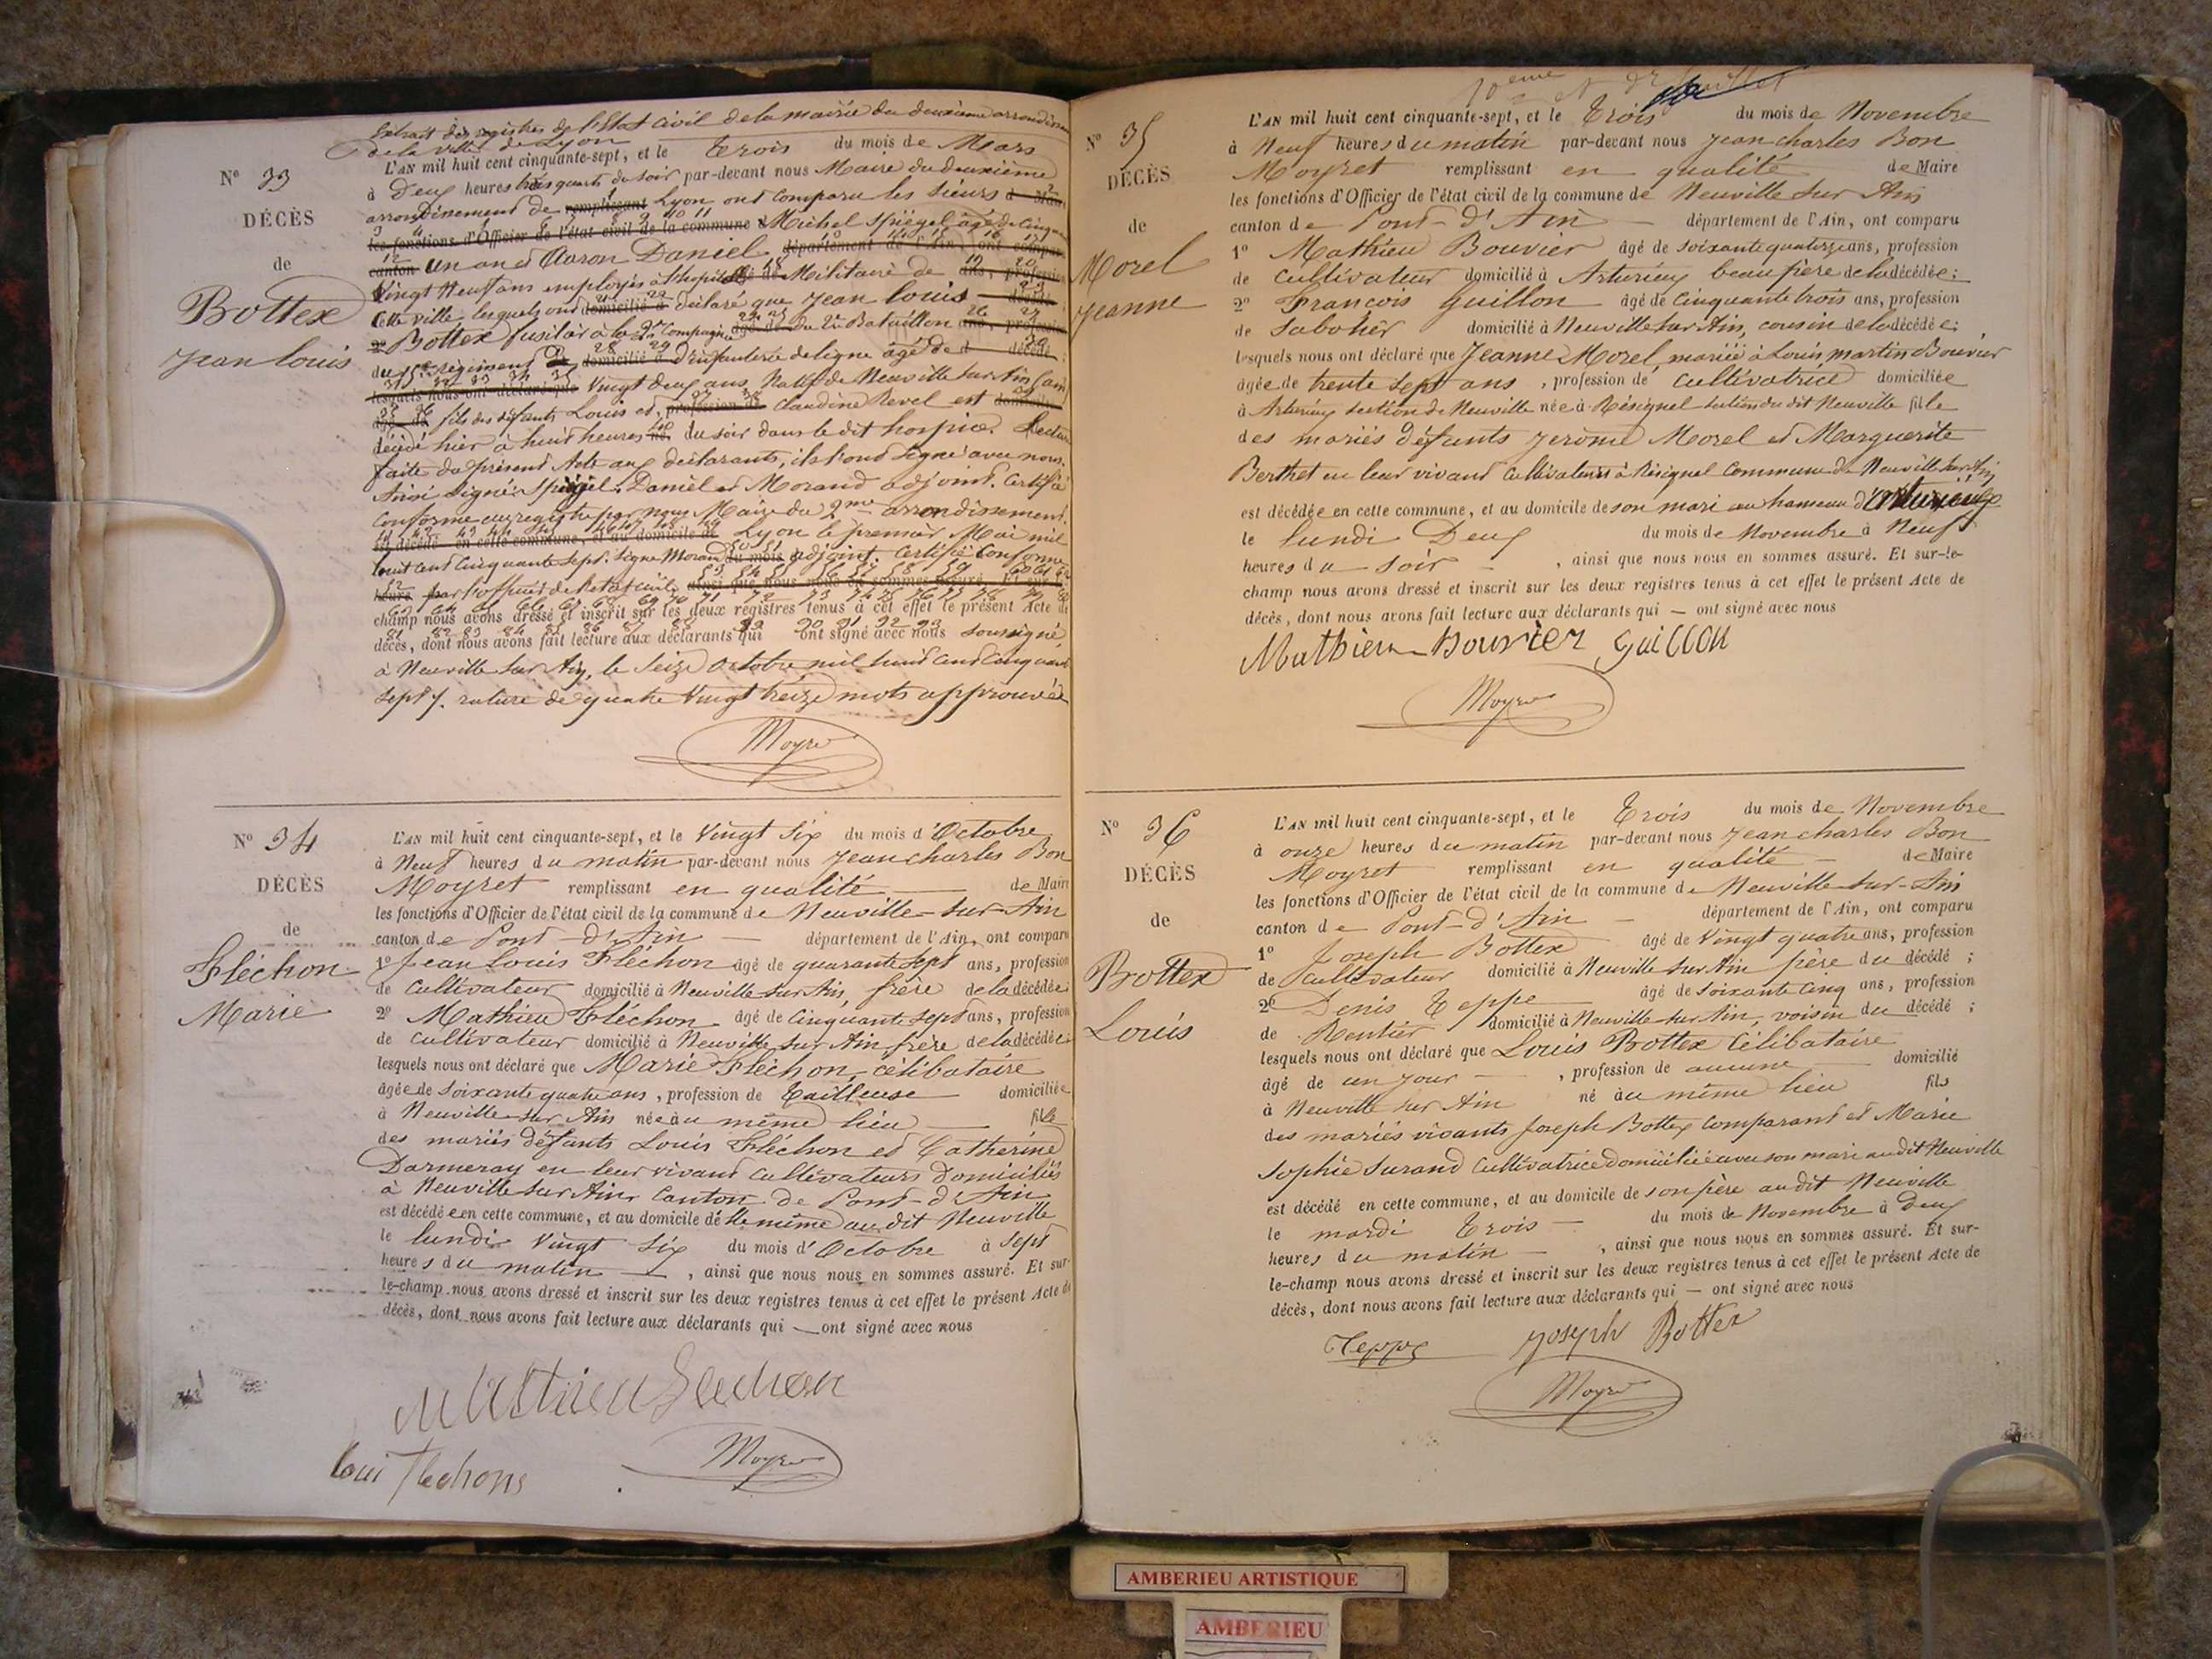 Extrait des registres de l'Etat Civil de la mairie du deuxième arrondissem
de la ville de Lyon
N° 33
DÉCÈS
de
Bottex
Jean Louis
L'AN mil huit cent cinquante-sept, et le trois du mois de Mars
à Deux heures trois quarts du soir par-devant nous Maire du deuxième
arrondissement de remplissant Lyon ont comparu les sieurs
les fonctions d'Officier de l'état civil de la commune Michel Spiégel âgé de Cinqu
canton un an et Aaron Daniel département de l'Ain, ont compar
Vingt Neuf ans employés à l'hopital Militaire de ans, profession
Cette ville lesquels ont domicilié à déclaré que Jean Louis
2° Bottex fusilier à la 2e Compagnie âgé de du 2e Bataillon ans, profession
du régiment domicilié à D'infanterie de ligne âgé de décédé
lesquels nous ont déclaré que Vingt deux ans, Natif de Neuville sur Ain (ain
âgé de fils des défunts Louis et profession de Claudine Revel est domicilié
décédé hier à huit heures né du soir dans le dit hospice. Lecture
faite du présent Acte aux déclarants, ils l'ont signé avec nous.
Ainsi signé Spiégel, Daniel et Morand adjoint. Certifié
Conforme au registre par nous Maire du 2me arrondissement.
est décédé en cette commune, et au domicile de Lyon le premier Mai mil
huit cent Cinquante sept. Signé Morand du mois adjoint. Certifié Conforme
heure par l'officier de l'Etat civil ainsi que nous nous en sommes assuré. Et sur le
champ nous avons dressé et inscrit sur les deux registres tenus à cet effet le présent Acte de
décès, dont nous avons fait lecture aux déclarants qui ont signé avec nous soussigné
à Neuville sur Ain, le Seize Octobre mil huit Cent Cinquante
sept. rature de quatre Vingt treize mots approuvée
Moyret
N° 34
DÉCÈS
de
Fléchon
Marie
L'AN mil huit cent cinquante-sept, et le Vingt Six du mois d'Octobre
à Neuf heures du matin par-devant nous Jean charles Bon
Moyret remplissant en qualité de Maire
les fonctions d'Officier de l'état civil de la commune de Neuville-sur-Ain
canton de Pont-d'Ain département de l'Ain, ont comparu
1° Jean Louis Fléchon âgé de quarante sept ans, profession
de Cultivateur domicilié à Neuville sur Ain, frère de la décédée;
2° Mathieu Fléchon âgé de Cinquante sept ans, profession
de Cultivateur domicilié à Neuville sur Ain frère de la décédée;
lesquels nous ont déclaré que Marie Fléchon, célibataire
âgée de soixante quatre ans, profession de Tailleuse domiciliée
à Neuville-sur Ain née au même lieu fille
des mariés défunts Louis Fléchon et Catherine
Darmeray en leur vivant Cultivateurs Domiciliés
à Neuville sur Ain, Canton de Pont-d'Ain
est décédée en cette commune, et au domicile d'elle même au dit Neuville
le lundi Vingt Six du mois d'Octobre à sept
heures du matin, ainsi que nous nous en sommes assuré. Et sur-
le-champ nous avons dressé et inscrit sur les deux registres tenus à cet effet le présent Acte de
décès, dont nous avons fait lecture aux déclarants qui — ont signé avec nous
Mathieu Flechon
Loui Flechons
Moyret
10eme et dr feuillet
N° 35
DÉCÈS
de
Morel
Jeanne
L'AN mil huit cent cinquante-sept, et le trois du mois de Novembre
à Neuf heures du matin par-devant nous Jean charles Bon
Moyret remplissant en qualité de Maire
les fonctions d'Officier de l'état civil de la commune de Neuville sur Ain
canton de Pont-d'Ain département de l'Ain, ont comparu
1° Mathieu Bouvier âgé de soixante quatorze ans, profession
de Cultivateur domicilié à Arturieux beau père de la décédée;
2° François Guillon âgé de Cinquante trois ans, profession
de Sabotier domicilié à Neuville sur Ain, cousin de la décédée;
lesquels nous ont déclaré que Jeanne Morel, mariée à Louis martin Bouvier
âgée de trente sept ans, profession de cultivatrice domiciliée
à Arturieux section de Neuville née à Résignel section du dit Neuville fille
des mariés défunts Jérome Morel et Marguerite
Berthet en leur vivant Cultivateurs à Résignel Commune de Neuville sur Ain
est décédée en cette commune, et au domicile de son mari au hameau d'Arturieux
le lundi Deux du mois de Novembre à Neuf
heures du soir, ainsi que nous nous en sommes assuré. Et sur-le-
champ nous avons dressé et inscrit sur les deux registres tenus à cet effet le présent Acte de
décès, dont nous avons fait lecture aux déclarants qui — ont signé avec nous
Mathieu Bouvier Guillon
Moyret
N° 36
DÉCÈS
de
Brottex
Louis
L'AN mil huit cent cinquante-sept, et le trois du mois de Novembre
à onze heures du matin par-devant nous Jean charles Bon
Moyret remplissant en qualité de Maire
les fonctions d'Officier de l'état civil de la commune de Neuville-sur-Ain
canton de Pont-d'Ain département de l'Ain, ont comparu
1° Joseph Bottex âgé de Vingt quatre ans, profession
de Cultivateur domicilié à Neuville sur Ain père du décédé;
2° Denis Teppe âgé de soixante Cinq ans, profession
de Rentier domicilié à Neuville sur Ain, voisin du décédé;
lesquels nous ont déclaré que Louis Bottex Célibataire
âgé de un jour, profession de aucune domicilié
à Neuville sur Ain né au même lieu fils
des mariés vivants Joseph Bottex comparant et Marie
Sophie Durand Cultivatrice domiciliée avec son mari au dit Neuville
est décédé en cette commune, et au domicile de son père au dit Neuville
le mardi trois du mois de Novembre à Deux
heures du matin, ainsi que nous nous en sommes assuré. Et sur-
le-champ nous avons dressé et inscrit sur les deux registres tenus à cet effet le présent Acte de
décès, dont nous avons fait lecture aux déclarants qui — ont signé avec nous
Teppe Joseph Bottex
Moyret
AMBERIEU ARTISTIQUE
AMBERIEU